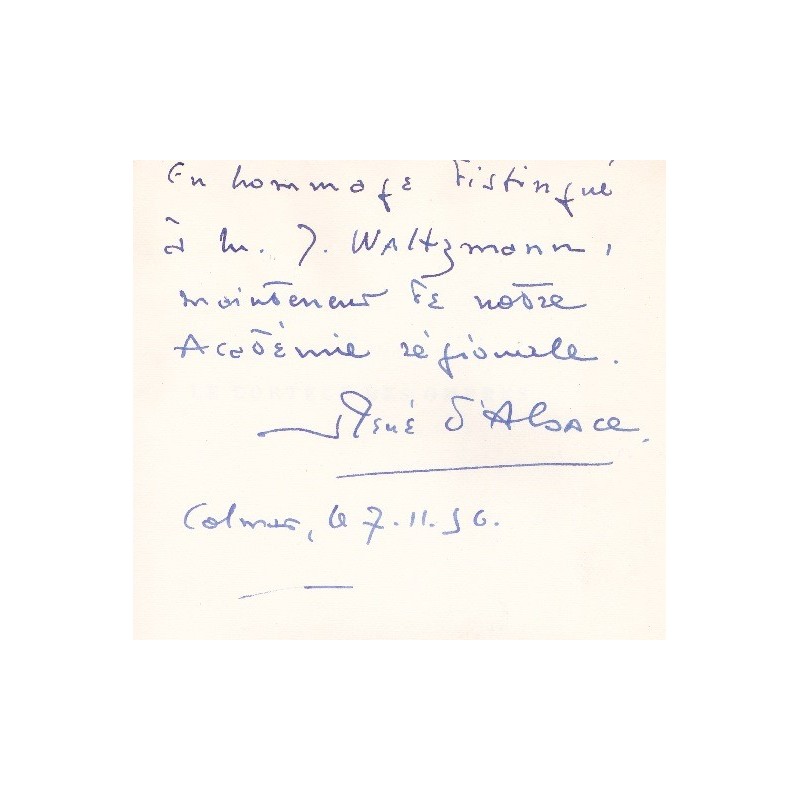 En hommage distingué
à M. J. Waltzmann,
mainteneur de notre
Académie régionale.
René d'Alsace.
Colmar, le 7.11.56.